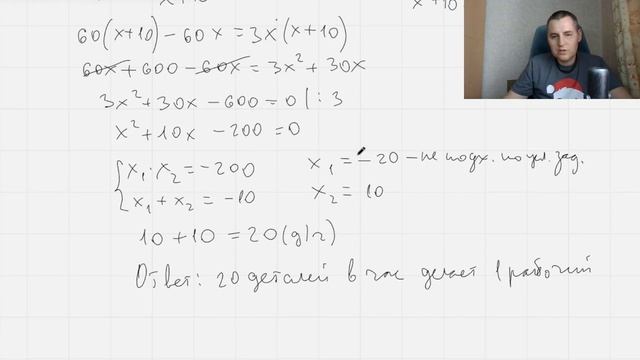 x+10
60(x+10)-60x=3x(x+10)
60x+600-60x=3x²+30x
3x²+30x-600=0 |:3
x²+10x-200=0
{x₁·x₂=-200
x₁+x₂=-10
x₁=-20-не подх. по усл. зад.
x₂=10
10+10=20(д/ч)
Ответ: 20 деталей в час делает 1 рабочий